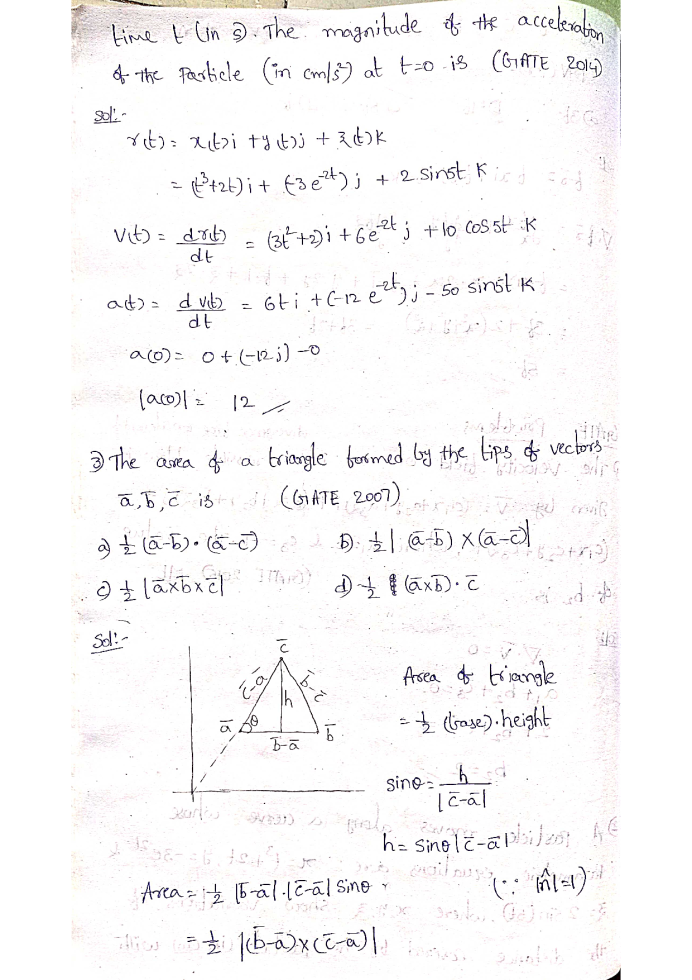 time t (in s). The magnitude of the acceleration
of the Particle (in cm/s²) at t=0 is (GATE 2014)
Sol:-
r(t) = x(t)i + y(t)j + z(t)k
= (t³+2t)i + (-3e^-2t)j + 2 sin5t K
V(t) = dr(t)/dt = (3t²+2)i + 6e^-2t j + 10 cos5t K
a(t) = d v(t)/dt = 6t i + (-12 e^-2t)j - 50 sin5t K
a(0) = 0 + (-12j) - 0
|a(0)| = 12
③ The area of a triangle formed by the tips of vectors
a̅, b̅, c̅ is (GATE 2007)
a) ½ (a̅-b̅)·(a̅-c̅) b) ½ | (a̅-b̅) × (a̅-c̅)|
c) ½ |a̅×b̅×c̅| d) ½ (a̅×b̅)·c̅
Sol:-
c̅
c̅-a̅ b̅-c̅
h
a̅ θ b̅
b̅-a̅
Area of triangle
= ½ (base).height
sinθ = h/|c̅-a̅|
h = sinθ |c̅-a̅|
Area = ½ |b̅-a̅|.|c̅-a̅| sinθ (∵ |n̂|=1)
= ½ |(b̅-a̅)×(c̅-a̅)|